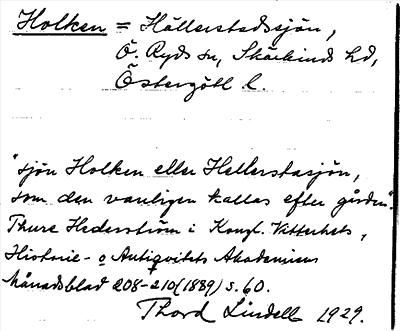 Holken = Hällerstadssjön,
Ö. Ryds sn, Skärkinds hd,
Östergötl l.
"sjön Holken eller Hellerstasjön,
som den vanligen kallas efter gården".
Thure Hederström i Kongl. Vitterhets,
Historie- o Antiqvitets Akademiens
Månadsblad 208-210 (1889) s. 60.
Thord Lindell 1929.